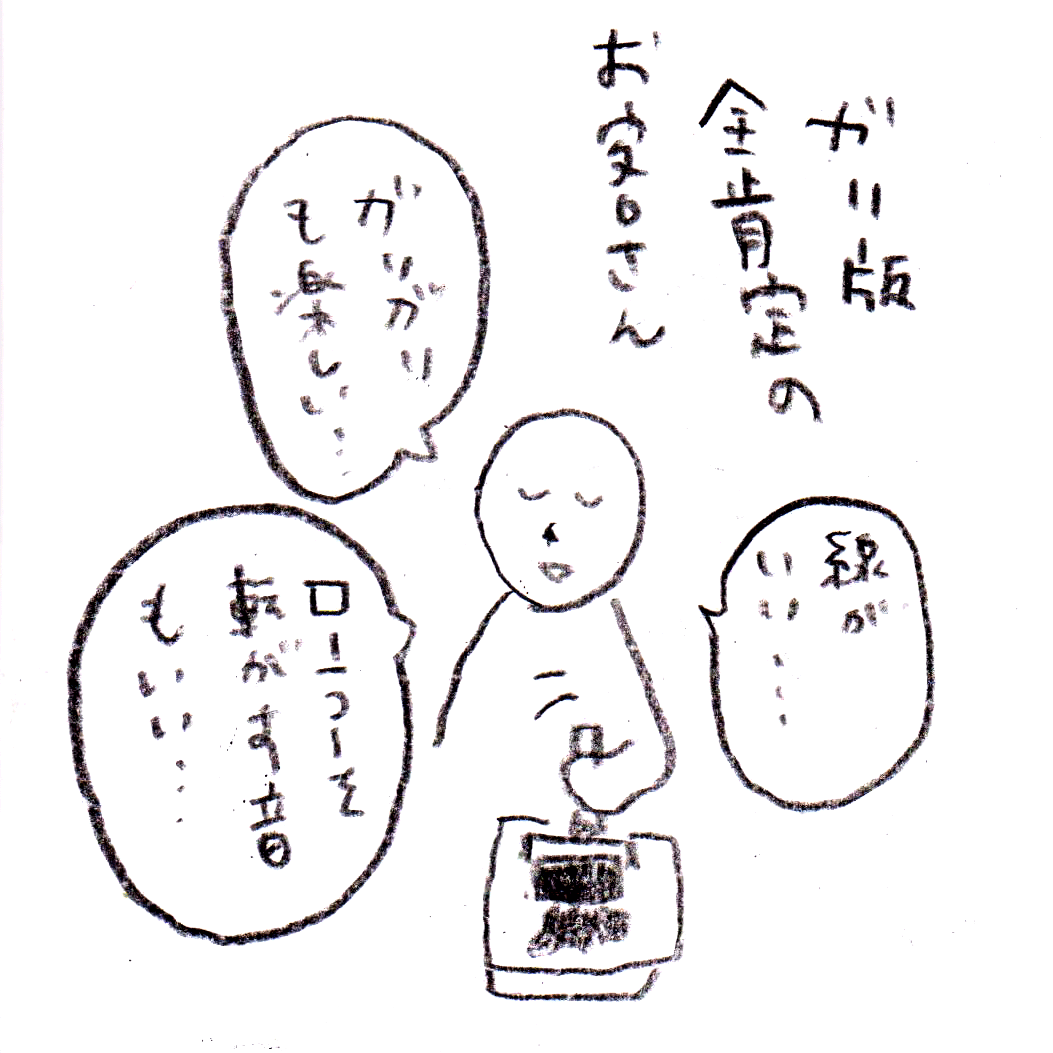 ガリ版
全肯定の
お客さん
線が
いい…
ガリガリ
も楽しい…
ローラーを
転がす音
もいい…